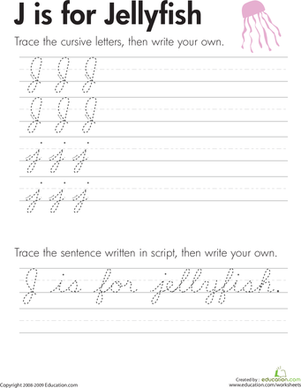 J is for Jellyfish
Trace the cursive letters, then write your own.
J J J
J J J
j j j
j j j
Trace the sentence written in script, then write your own.
J is for jellyfish.
Created by : education.com
Copyright 2008-2009 Education.com
www.education.com/worksheets